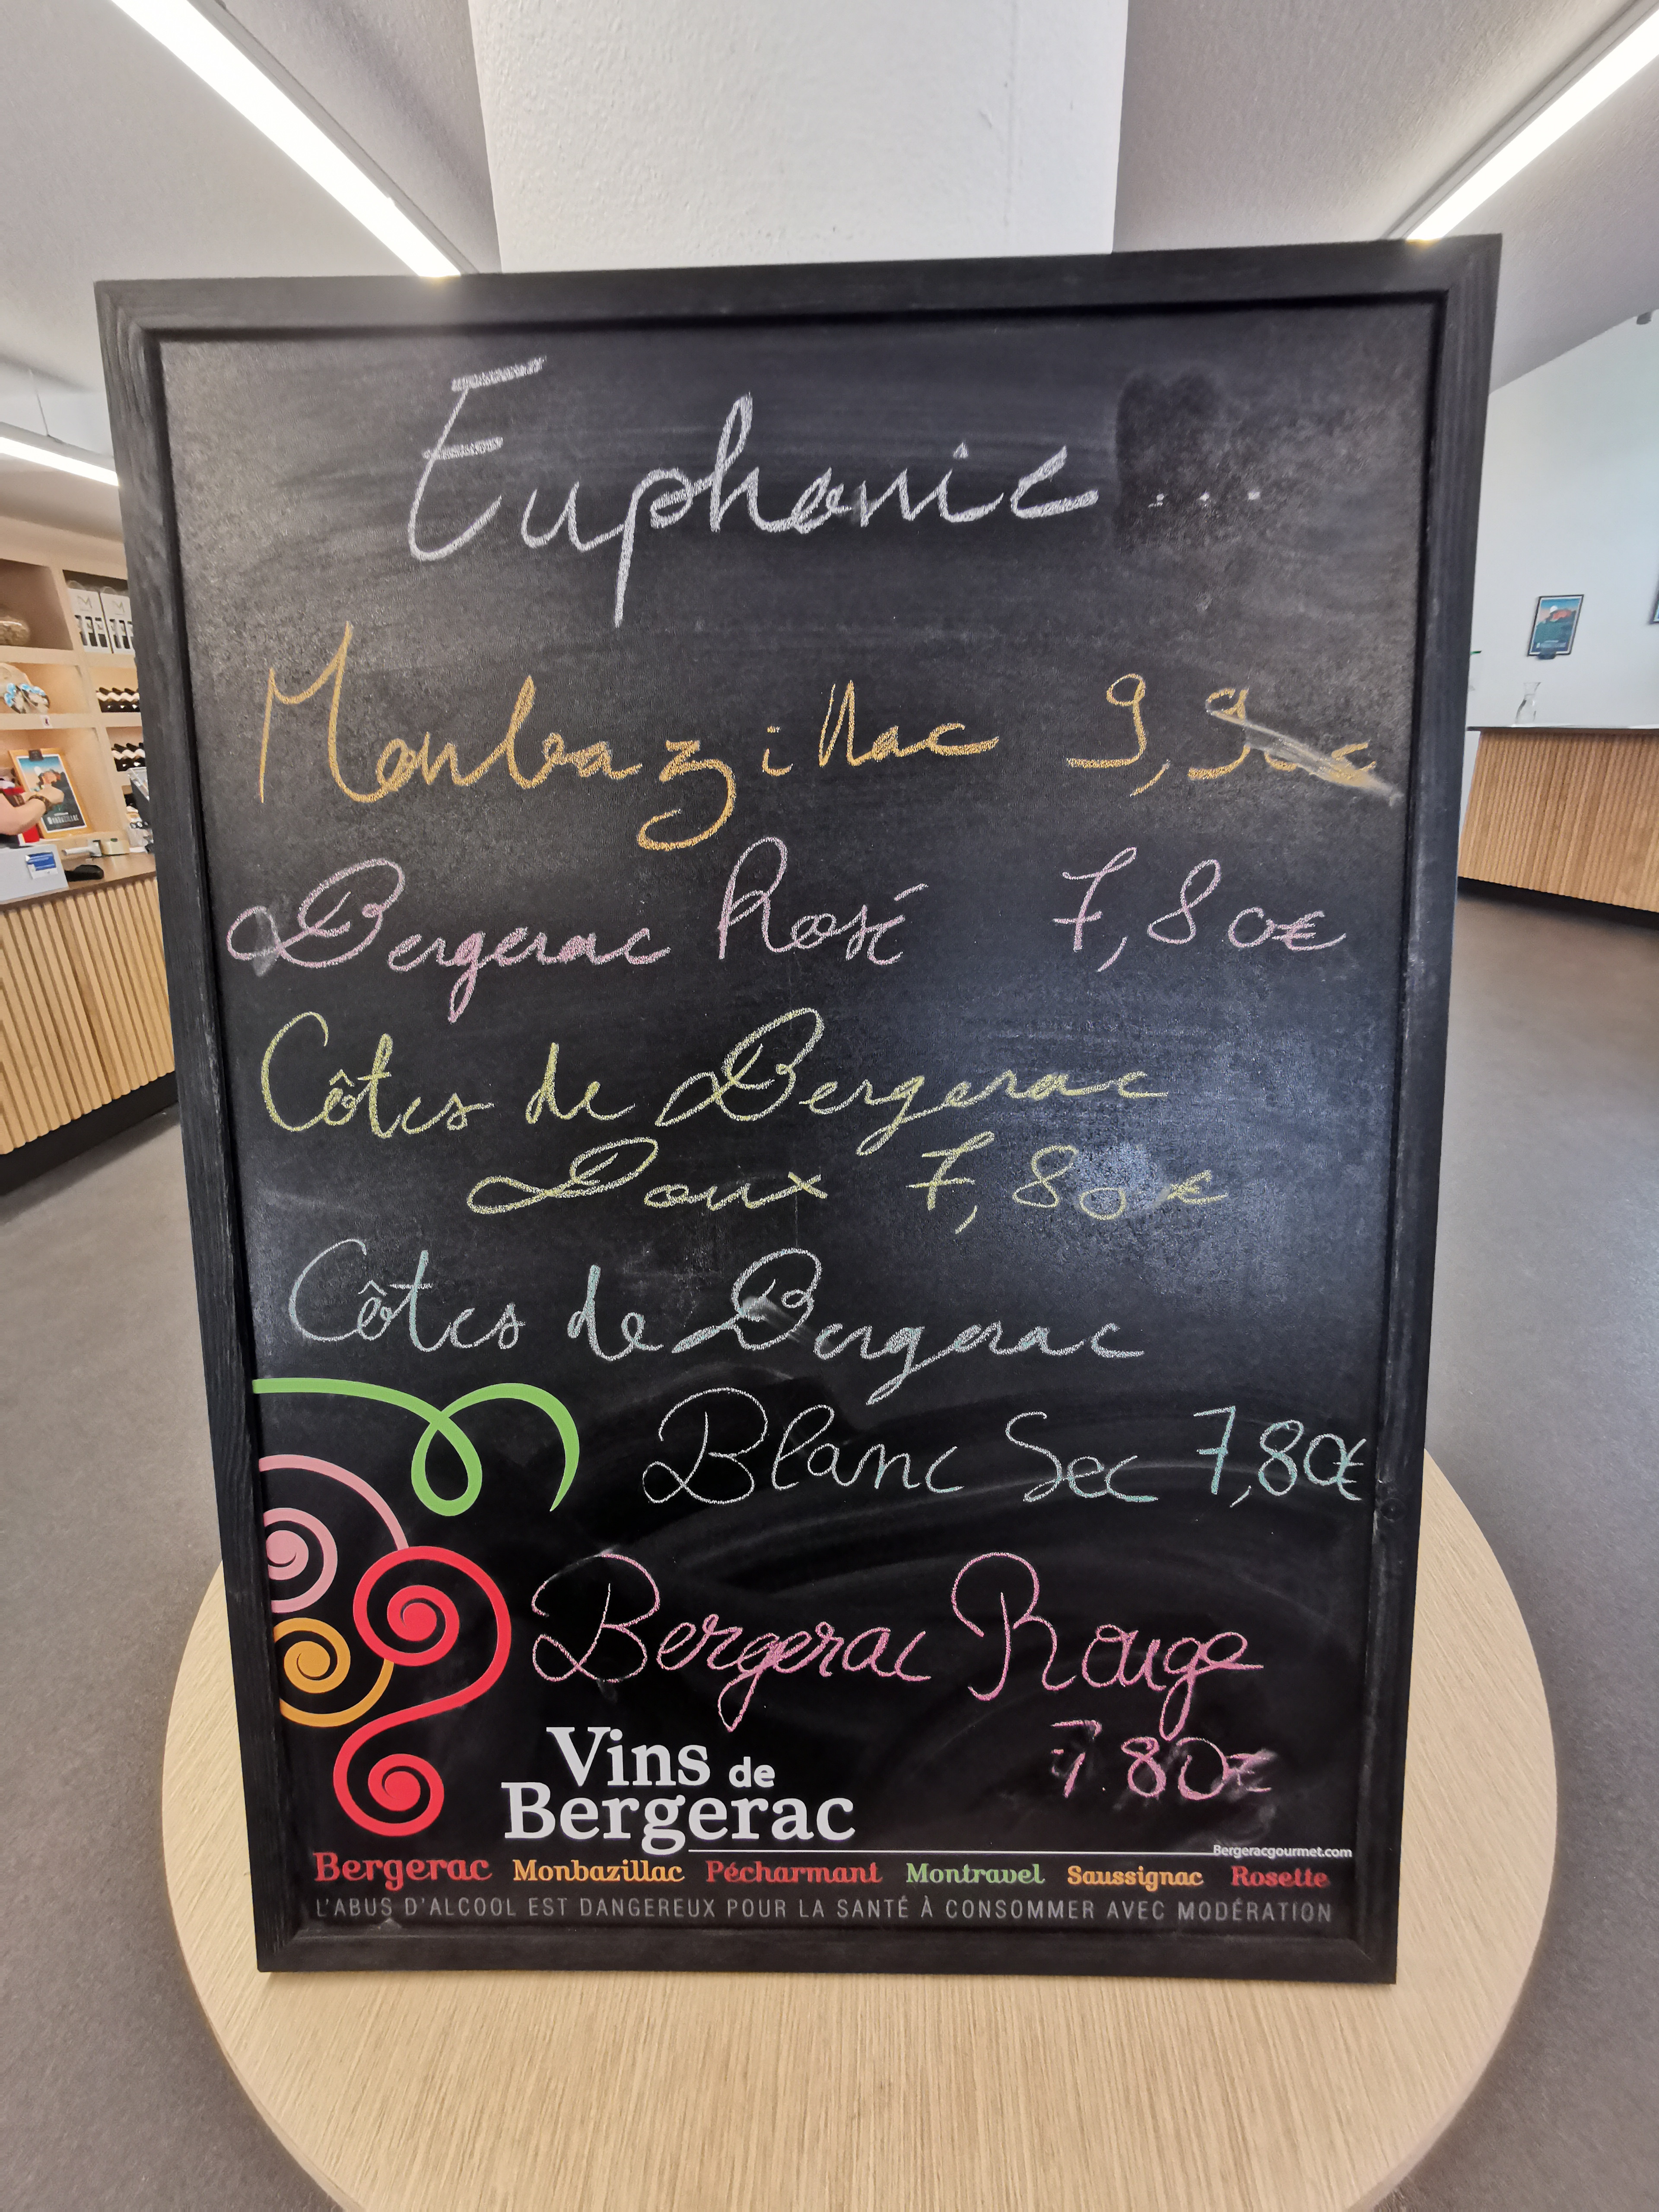 Euphonie ...
Monbazillac 9,90€
Bergerac Rosé 7,80€
Côtes de Bergerac
Doux 7,80€
Côtes de Bergerac
Blanc Sec 7,80€
Bergerac Rouge
7.80€
Vins de
Bergerac
Bergeracgourmet.com
Bergerac Monbazillac Pécharmant Montravel Saussignac Rosette
L'ABUS D'ALCOOL EST DANGEREUX POUR LA SANTÉ À CONSOMMER AVEC MODÉRATION